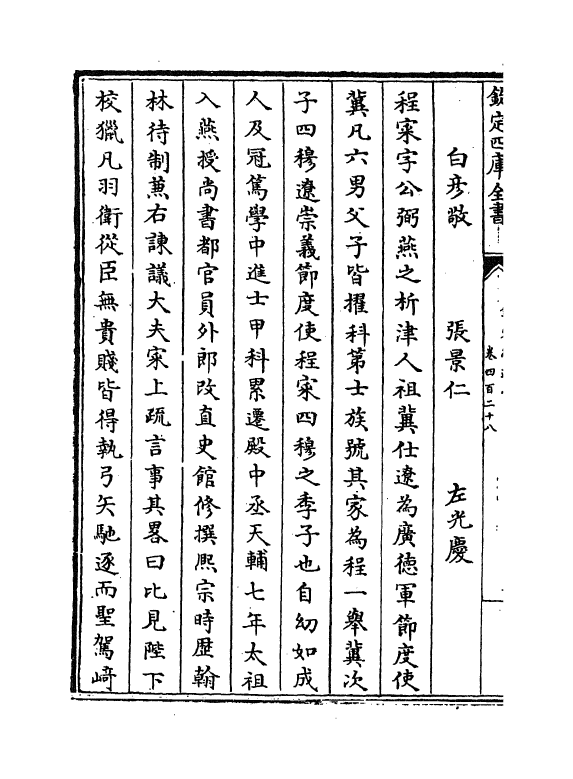 欽定四庫全書
卷四百二十八
白彦敬　張景仁　左光慶
程寀字公弼燕之析津人祖冀仕遼為廣德軍節度使
冀凡六男父子皆擢科第士族號其家為程一舉冀次
子四穆遼崇義節度使程寀四穆之季子也自幼如成
人及冠篤學中進士甲科累遷殿中丞天輔七年太祖
入燕授尚書都官員外郎改直史館修撰熙宗時歴翰
林待制兼右諫議大夫寀上疏言事其畧曰比見陛下
校獵凡羽衛從臣無貴賤皆得執弓矢馳逐而聖駕﨑